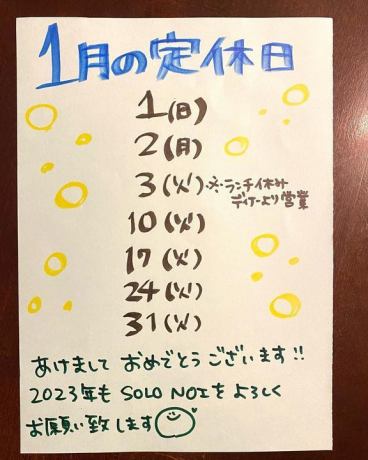 1月の定休日
1(日)
2(月)
3(火)※ランチ休み
ディナーより営業
10(火)
17(火)
24(火)
31(火)
あけまして おめでとうございます!!
2023年も SOLO NOIをよろしく
お願い致します